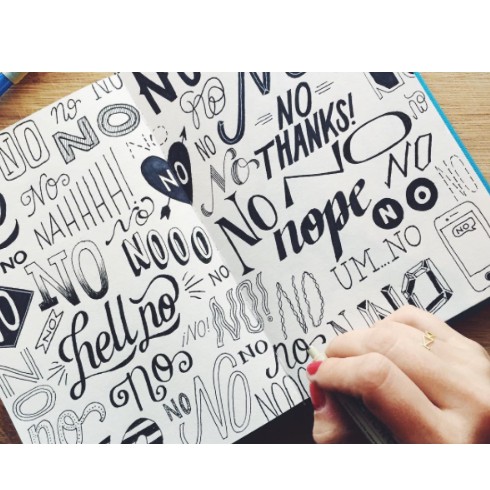 NO
no
NO
NO
NO
no
NO
THANKS!
NO
no
NO
NO
No
NO
NO
NO
No
NAHHHH!
no
NO
nope
NO
NO
NO
NOOO
UM...NO
NO
NO
NO
hell no
¡NO!
NO!
NO
NO
NO
no
NO
no
NO
NO
NO
no
NO